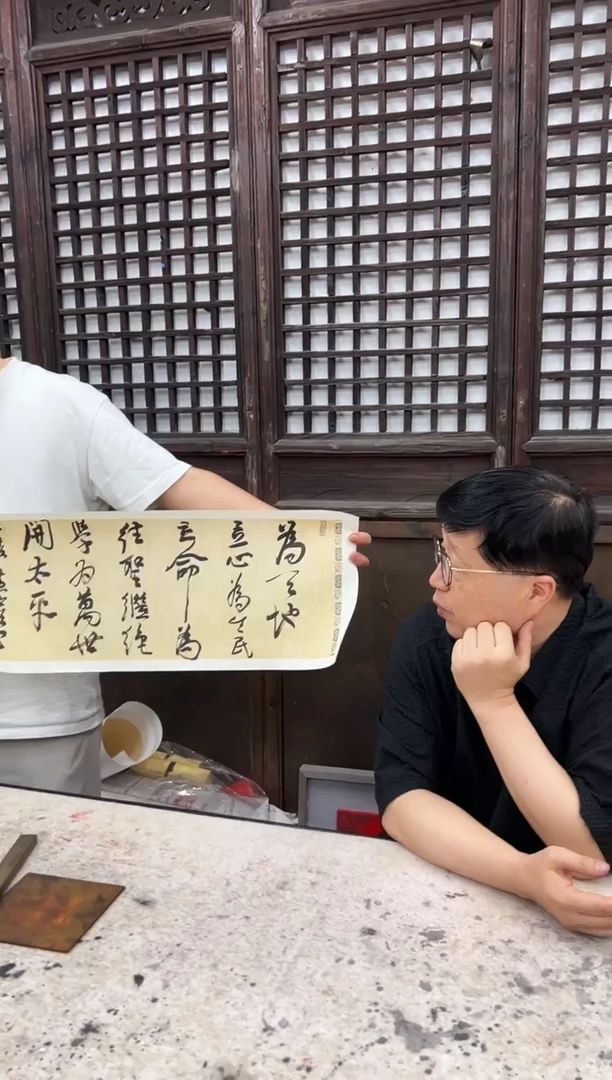 為天地
立心為生民
立命為
往聖繼絕
學为萬世
開太平